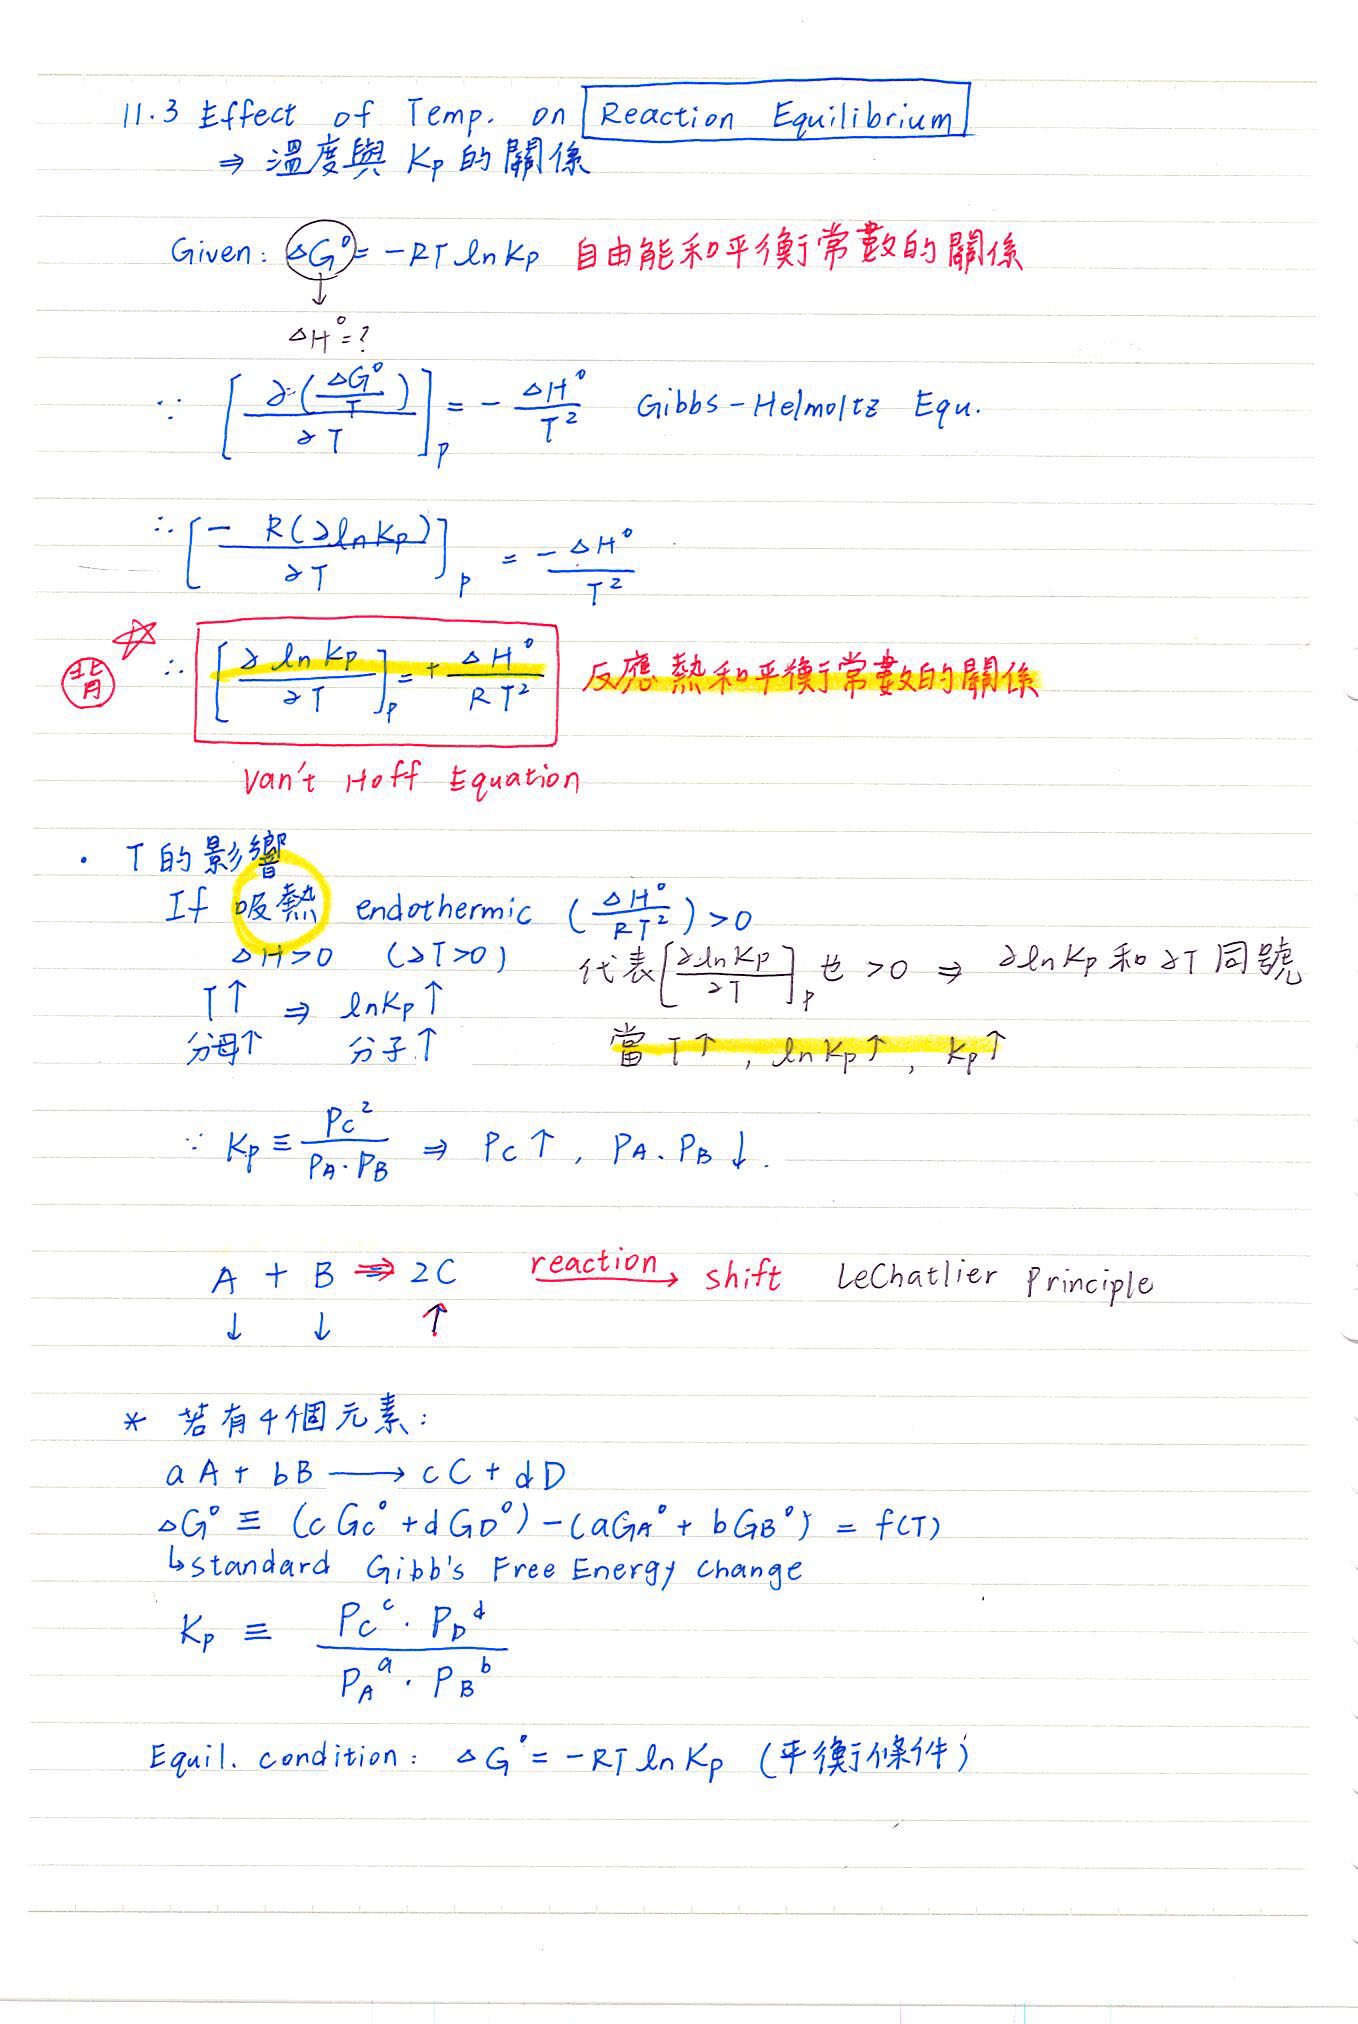 11.3 Effect of Temp. on Reaction Equilibrium
⇒ 溫度與 Kp 的關係
Given: ΔG° = -RT ln Kp 自由能和平衡常數的關係
↓
ΔH° = ?
∵ [∂(ΔG°/T)/∂T]p = - ΔH°/T² Gibbs-Helmoltz Equ.
∴ [- R(∂ln Kp)/∂T]p = -ΔH°/T²
背 ☆ ∴ [∂ ln Kp/∂T]p = + ΔH°/RT² 反應熱和平衡常數的關係
Van't Hoff Equation
· T的影響
If 吸熱 endothermic (ΔH°/RT²) > 0
ΔH>0 (∂T>0) 代表[∂ln Kp/∂T]p 也 >0 ⇒ ∂ln Kp 和 ∂T 同號
T↑ ⇒ lnKp↑
分母↑ 分子↑ 當 T↑, ln Kp↑, Kp↑
∵ Kp ≡ Pc²/PA·PB ⇒ Pc↑, PA.PB↓.
A + B ⇒ 2C reaction→ shift LeChatlier Principle
↓ ↓ ↑
* 若有4個元素:
aA + bB ⟶ cC + dD
ΔG° ≡ (cGc° + dGD°) - (aGA° + bGB°) = f(T)
↳standard Gibb's Free Energy Change
Kp ≡ Pc^c · PD^d / PA^a · PB^b
Equil. condition: ΔG° = -RT ln Kp (平衡條件)